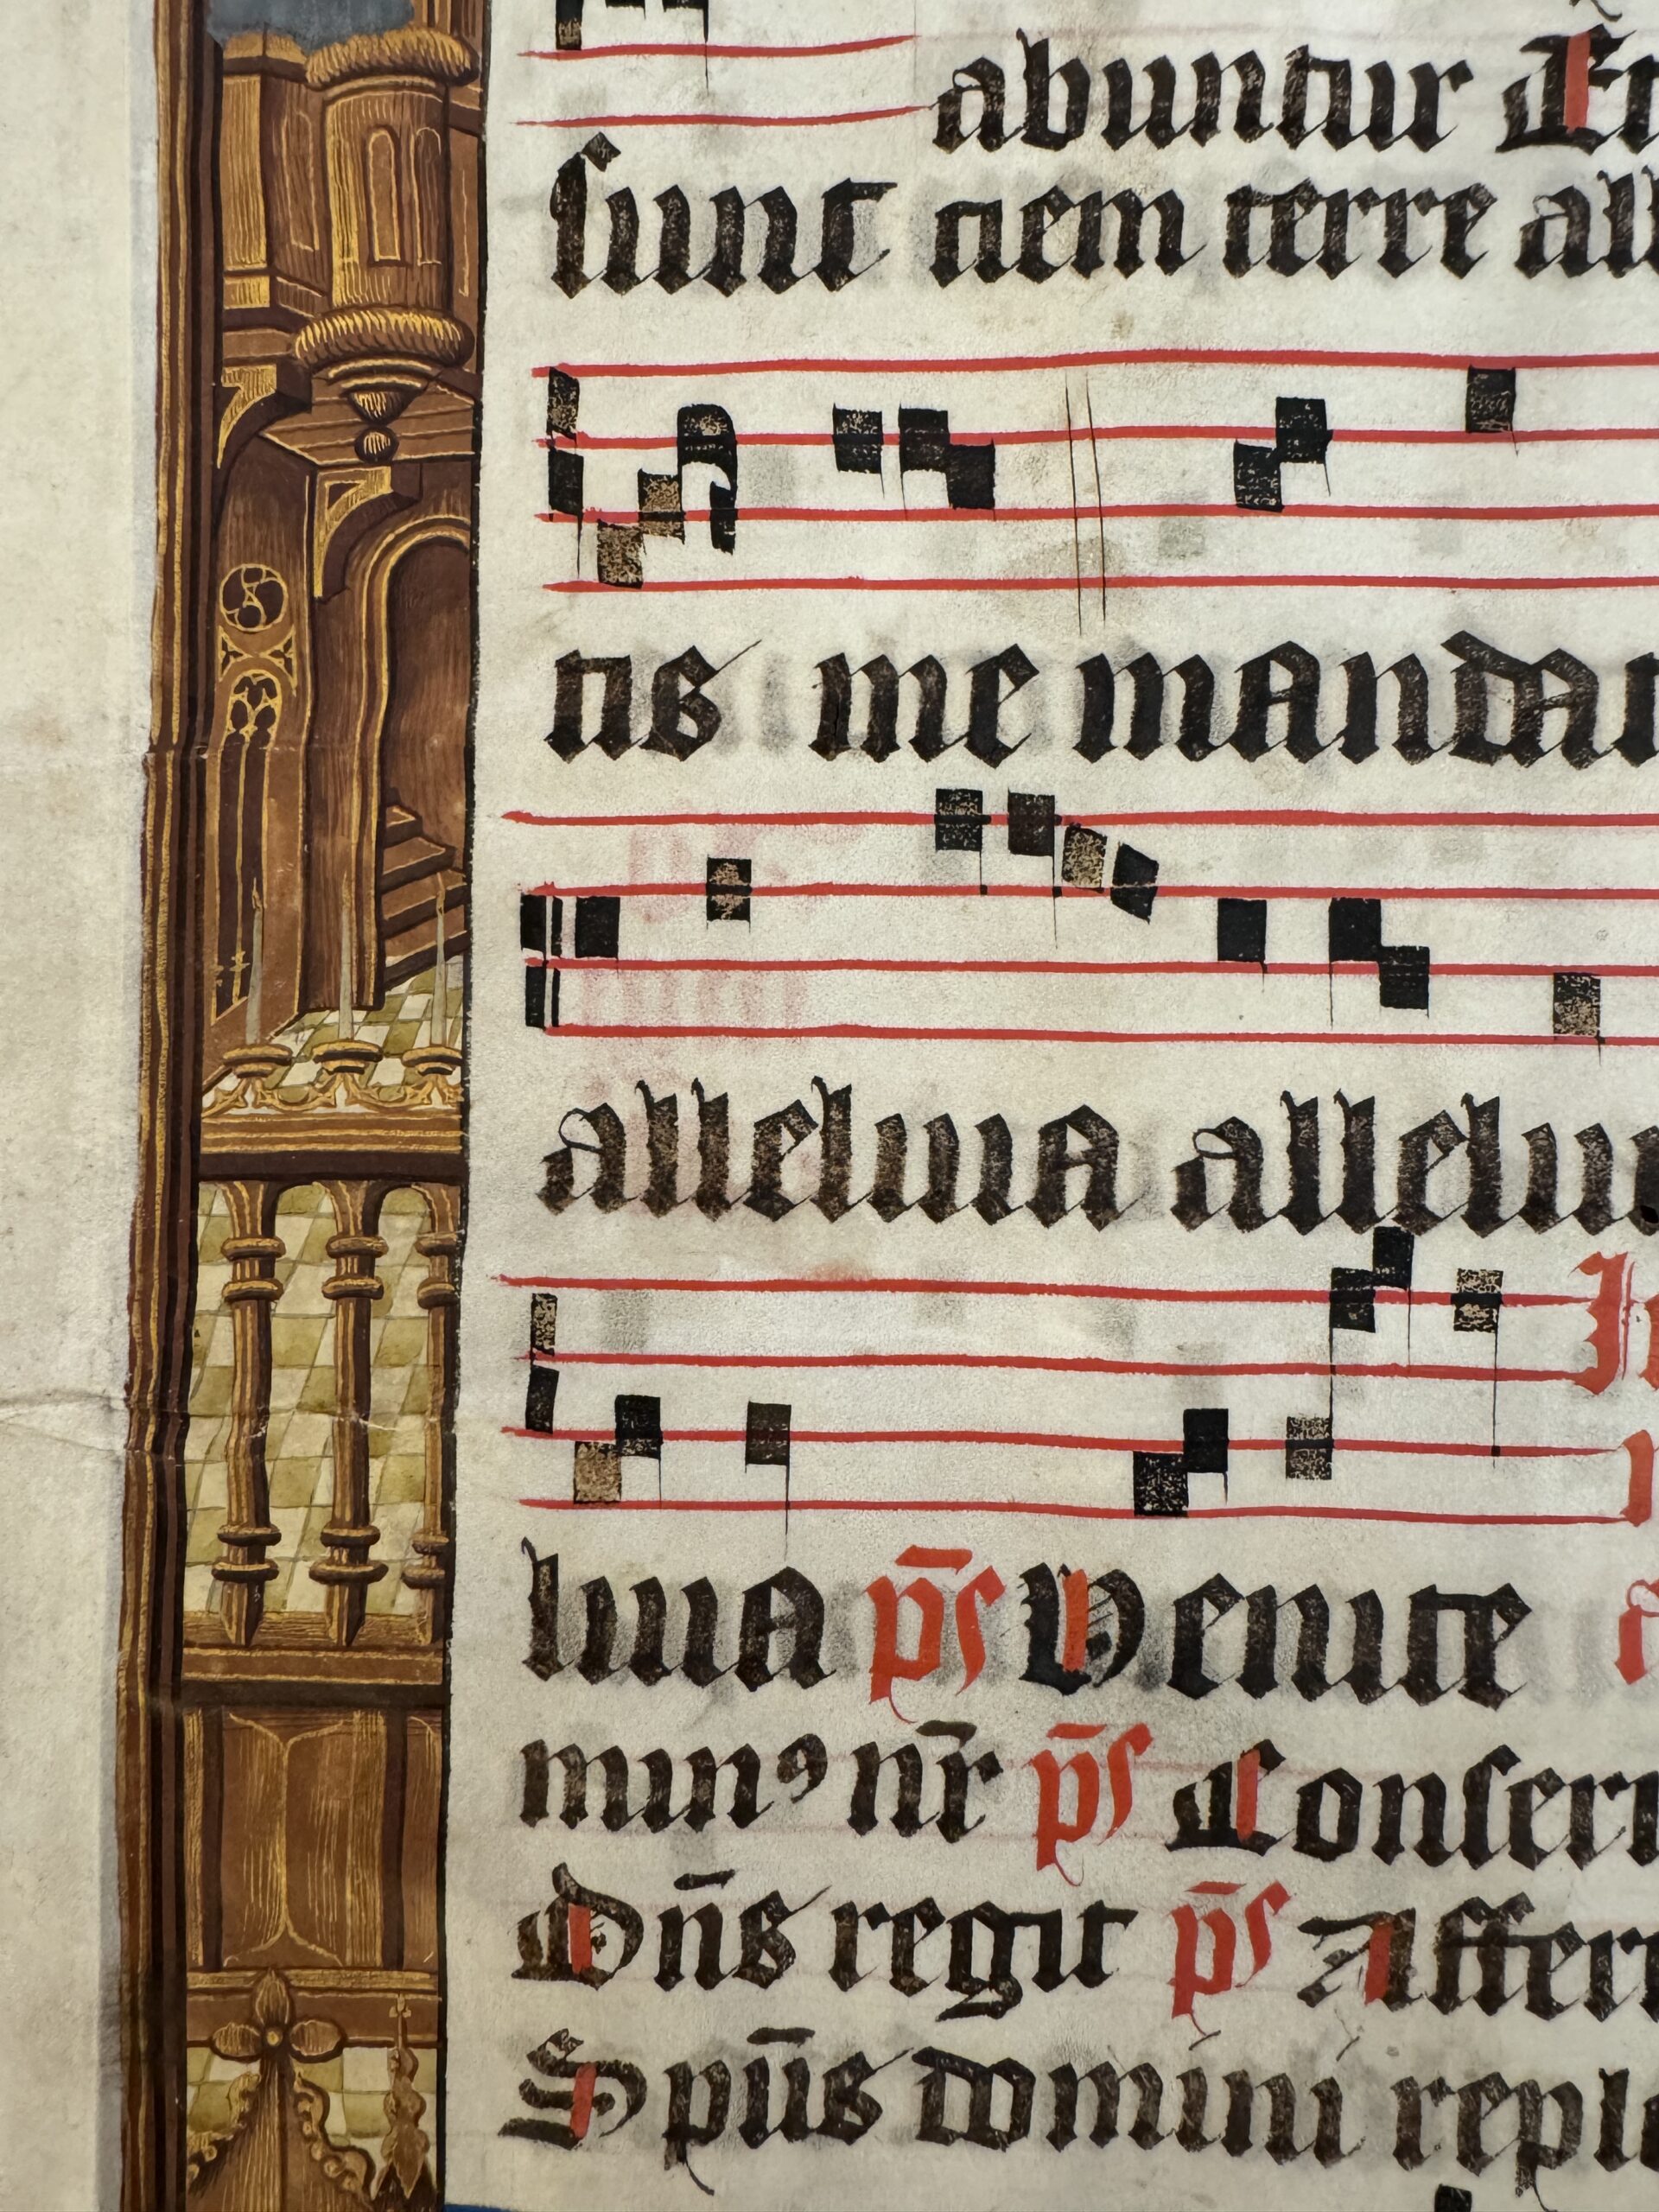 abuntur Et
sunt
ciem terre all
tis me mandat
alleluia allelui
luia ps̄ Venite
minꝰ nr̄ ps̄ Conser
Dn̄s regit ps̄ Affer
Spūs domini reple